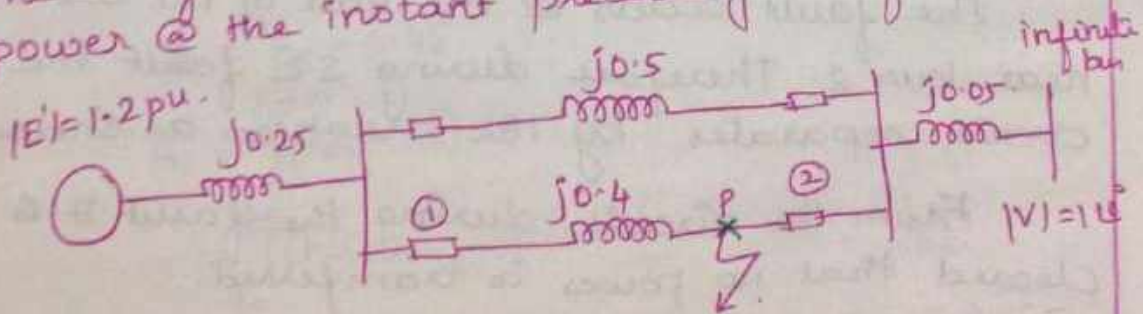 power @ the instant
infinite
bus
|E'|= 1.2 pu.
j0.25
j0.5
j0.05
①
j0.4
P
②
|V| = 1